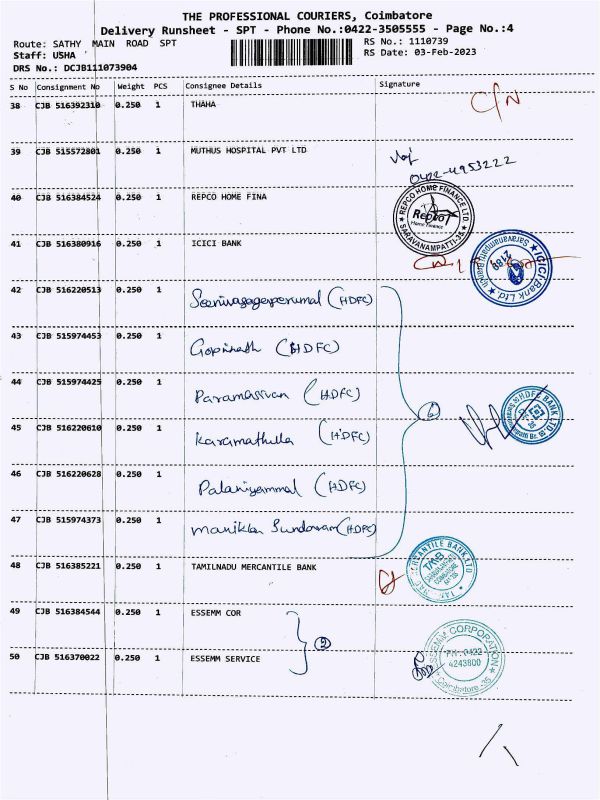 THE PROFESSIONAL COURIERS, Coimbatore
Delivery Runsheet - SPT - Phone No.:0422-3505555 - Page No.:4
Route: SATHY MAIN ROAD SPT
RS No.: 1110739
Staff: USHA
RS Date: 03-Feb-2023
DRS No.: DCJB111073904
S No Consignment No Weight PCS Consignee Details Signature
38 CJB 516392310 0.250 1 THAHA C/N
39 CJB 515572801 0.250 1 MUTHUS HOSPITAL PVT LTD
0422-4953222
40 CJB 516384524 0.250 1 REPCO HOME FINA
REPCO HOME FINANCE LTD.
Repco
Home Finance
SARAVANAMPATTI-35
41 CJB 516380916 0.250 1 ICICI BANK
ICICI Bank Ltd.
Saravanampatti Branch
2188
42 CJB 516220513 0.250 1 Seenivasagaperumal (HDFC)
43 CJB 515974453 0.250 1 Gopinath (HDFC)
44 CJB 515974425 0.250 1 Paramasivan (HDFC)
6
HDFC BANK LTD.
45 CJB 516220610 0.250 1 Karamathulla (HDFC)
46 CJB 516220628 0.250 1 Palaniyammal (HDFC)
47 CJB 515974373 0.250 1 Manikka Sundaram (HDFC)
48 CJB 516385221 0.250 1 TAMILNADU MERCANTILE BANK
MERCANTILE BANK LTD
TMB
49 CJB 516384544 0.250 1 ESSEMM COR
2
50 CJB 516370022 0.250 1 ESSEMM SERVICE
ESSEMM CORPORATION
PH: 0422
4243800
Coimbatore-35